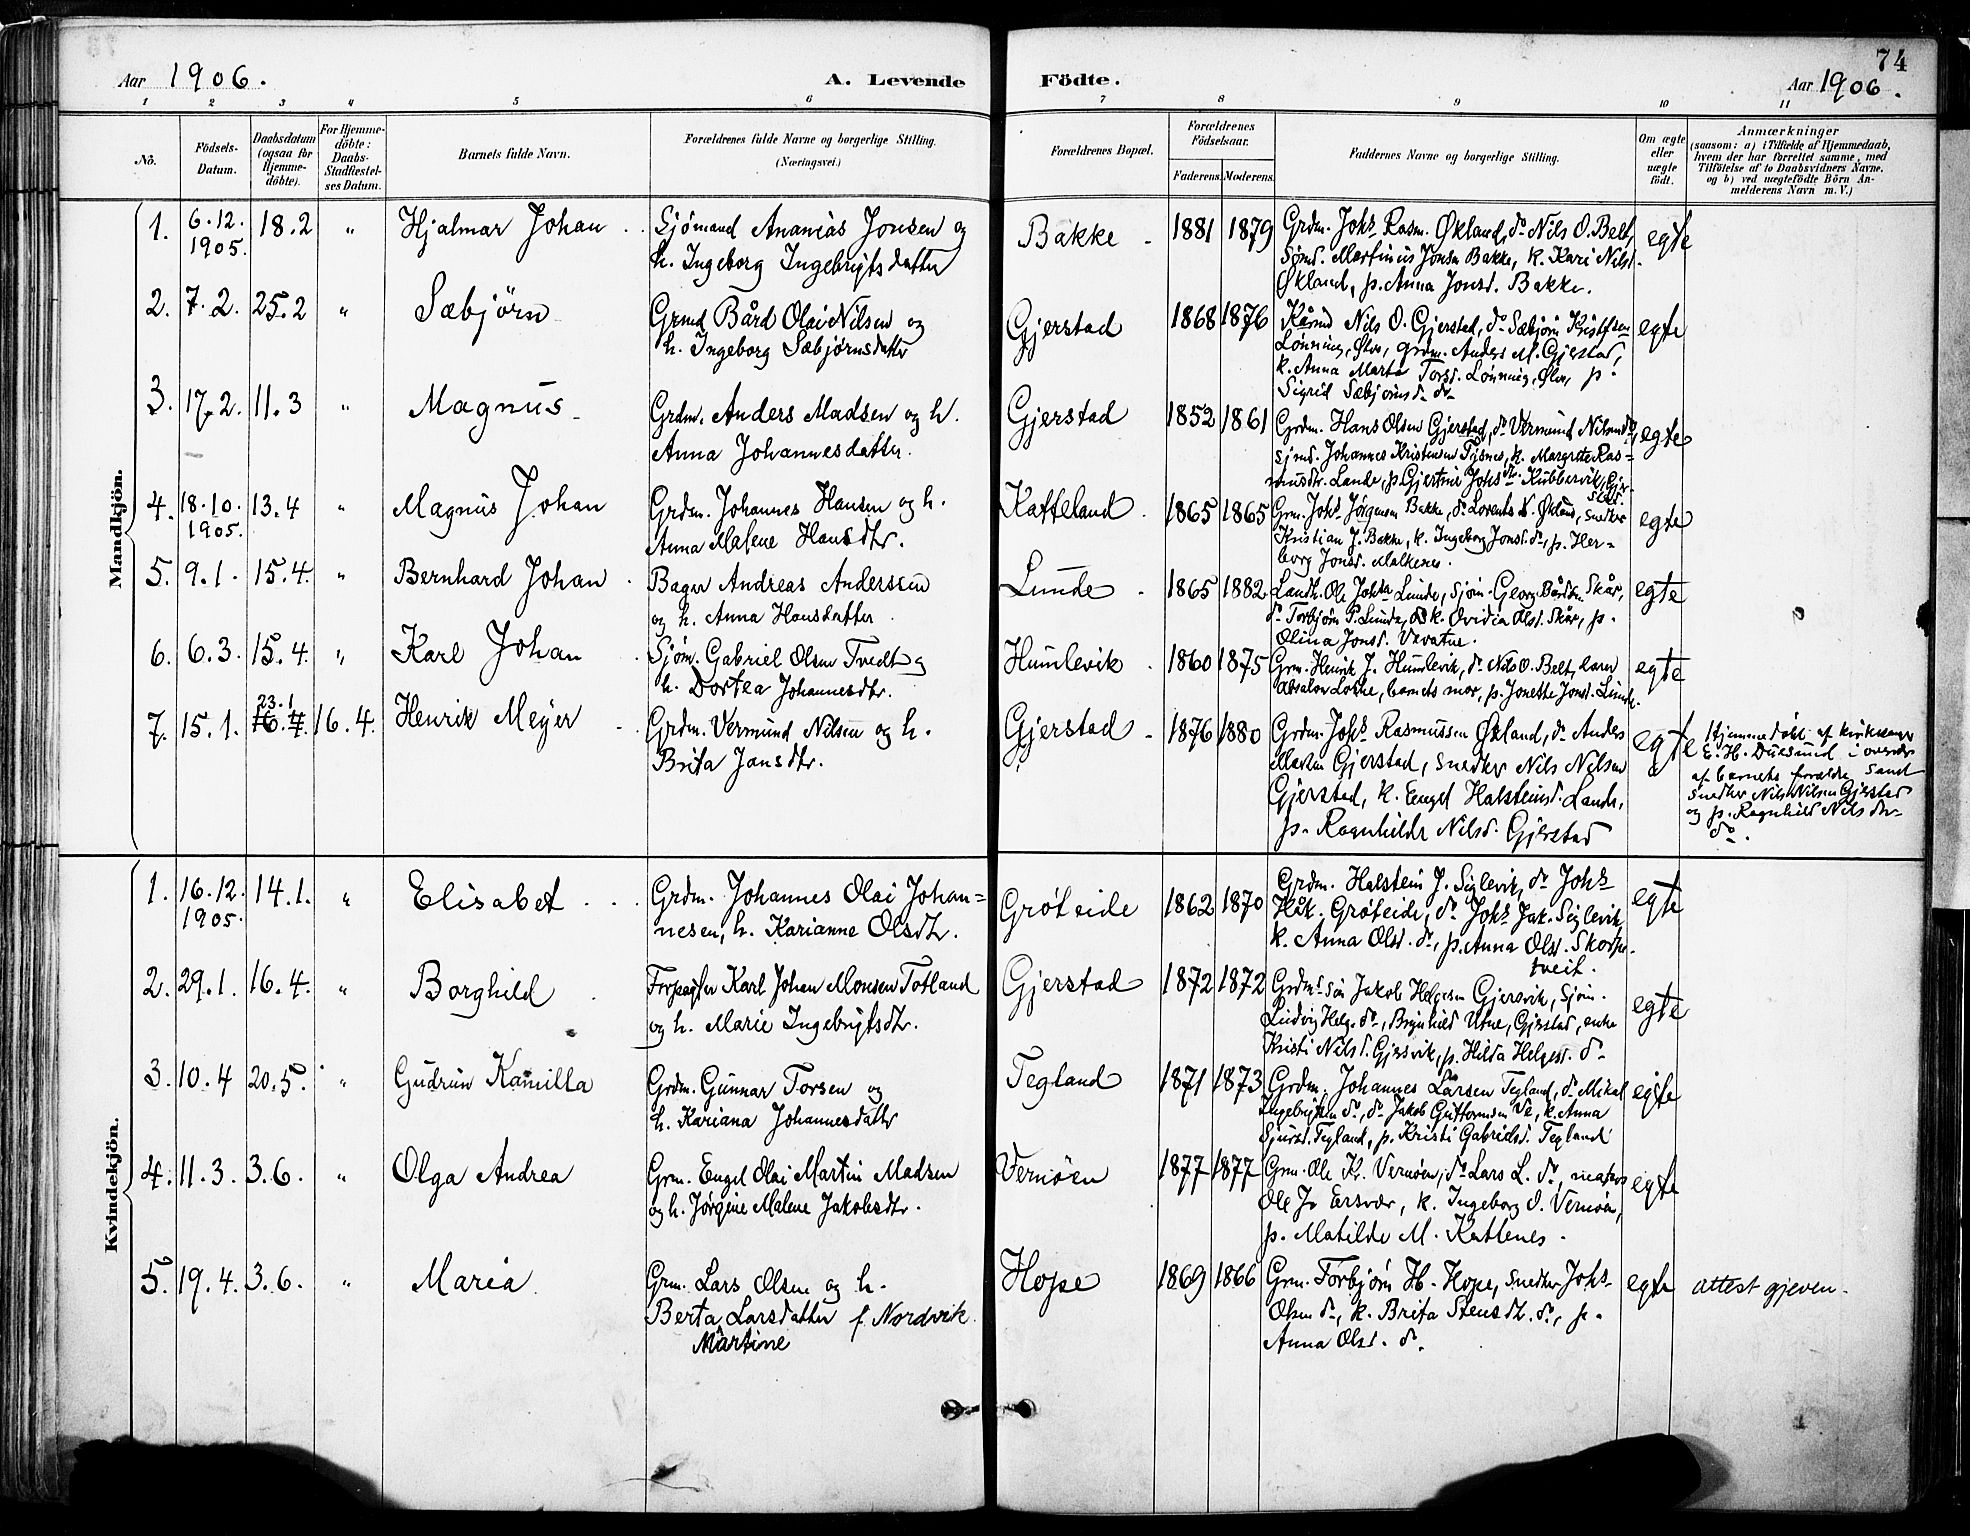 74
Aar 1906.
A. Levende
Födte.
Aar 1906.
1 2 3 4 5 6 7 8 9 10 11
No.
Födsels-
Datum.
Daabsdatum
(ogsaa for
Hjemme-
döbte).
For Hjemme-
döbte:
Daabs-
Stadfæstel-
ses Datum.
Barnets fulde Navn.
Forældrenes fulde Navne og borgerlige Stilling.
(Næringsvei.)
Forældrenes Bopæl.
Forældrenes
Födselsaar.
Faderens. Moderens.
Faddernes Navne og borgerlige Stilling.
Om ægte
eller
uægte
födt.
Anmærkninger
(saasom: a) i Tilfælde af Hjemmedaab,
hvem der har forrettet samme, med
Tilföielse af to Daabsvidners Navne.
og b) ved uægtefödte Börn An-
melderens Navn m. V.)
Mandkjön.
1. 6.12. 18.2 " Hjalmar Johan Sjömand Ananias Jonsen og Bakke 1881 1879 Grdm. Johs Rasm. Økland, do Nils O. Belt, egte
1905. h. Ingeborg Ingebrigtsdatter Sömd. Martinius Jonsen Bakke, k. Kari Nilsd.
Økland, p. Anna Jonsd. Bakke.
2. 7.2. 25.2 " Sæbjörn Grmd Bård Olai Nilsen og Gjerstad 1868 1876 Kårmd Nils O. Gjerstad, do Sæbjörn egte
h. Ingeborg Sæbjörnsdatter Lönning, Ølve, grdm. Anders M. Gjerstad,
k. Anna Marta Torsd. Lönning, Ølve, p.
Sigrid Sæbjörnsd. do
3. 17.2. 11.3 " Magnus Grdm. Anders Madsen og h. Gjerstad 1852 1861 Grdm. Hans Olsen Gjerstad, do Vermund Nilsen do, egte
Anna Johannesdatter. Sjmd. Johannes Kristensen Tysnes, k. Margrete Ras=
musdtr. Lande, p. Gjertine Johsdtr. Kubbervik, Gjer-
stad
4. 18.10. 13.4 " Magnus Johan Grdm. Johannes Hansen og h. Katteland 1865 1865 Grm. Johs Jörgensen Bakke, do Lorents N. Økland, snedker egte
1905. Anna Malene Hansdtr. Kristian J. Bakke, k. Ingeborg Jonsd. do, p. Her=
borg Jonsd. Malkenes.
5. 9.1. 15.4. " Bernhard Johan Bager Andreas Anderssen Lunde 1865 1882 Landh. Ole Johs Lunde, Sjöm. Georg Bårdsen Skår, egte
og h. Anna Hansdatter do Torbjörn P. Lunde, k. Ovidia Olsd. Skår, p.
Olina Jonsd.
6. 6.3. 15.4. " Karl Johan Sjöm. Gabriel Olsen Tvedt og Humlevik 1860 1875 Grm. Henrik J. Humlevik, do Nils O. Belt, egte
h. Dortea Johannesdtr. Absalon, barnets mor, p. Jonette Jonsd. Lunde.
23.1
7. 15.1. 16.4 16.4. Henrik Meyer Grdm. Vermund Nilsen og h. Gjerstad 1876 1880 Grdm. Johs Rasmussen Økland, do Anders egte Hjemmedöbt af kirkesanger
Brita Jansdtr. Gjerstad, snedker Nils Nilsen E. H. Duesund i overvær
Gjerstad, k. Engel Halsteinsd. Lande, af barnets forældre samt
p. Ragnhilde Nilsd. Gjerstad snedker Nils Nilsen Gjerstad
og p. Ragnhild Nilsdtr.
do.
Kvindekjön.
1. 16.12. 14.1. " Elisabet Grdm. Johannes Olai Johan= Gröteide 1862 1870 Grdm. Halstein J. Siglevik, do Johs egte
1905. nesen, h. Karianne Olsdtr. Håk. Gröteide, do Johs Jak. Siglevik,
k. Anna Olsd. do, p. Anna Olsd. Skorpe
tveit.
2. 29.1. 16.4. " Borghild Forpagter Karl Johan Monsen Totland Gjerstad 1872 1872 Grdms sön Jakob Helgesen Gjersvik, Sjöm. egte
og h. Marie Ingebrigtsdtr. Ludvig Helg. do, Brynhild Utne, Gjerstad, enke
Kristi Nilsd. Gjersvik, p. Hilda Helgesd. do
3. 10.4 20.5. " Gudrun Kamilla Grdm. Gunnar Torsen og Tegland 1871 1873 Grdm. Johannes Larsen Tegland, do Mikal egte
h. Kariana Johannesdatter Ingebrigtsen do, do Jakob Guttormsen Ve, k. Anna
Sjursd. Tegland, p. Kristi Gabrielsd. Tegland
4. 11.3. 3.6. " Olga Andrea Grm. Engel Olai Martin Madsen Vernöen 1877 1877 Grm. Ole Kr. Vernöen, do Lars L. do, matros egte
og h. Jörgine Malene Jakobsdtr. Ole J. Ersvær, k. Ingeborg O. Vernöen,
p. Matilde M. Kattenes.
5. 19.4. 3.6. " Maria Grm. Lars Olsen og h. Hope 1869 1866 Grm. Torbjörn H. Hope, Snedker Johs egte attest gjeven.
Berta Larsdatter f. Nordvik Olsen do, k. Brita Stensdtr. do, p.
Martine Anna Olsd. do.